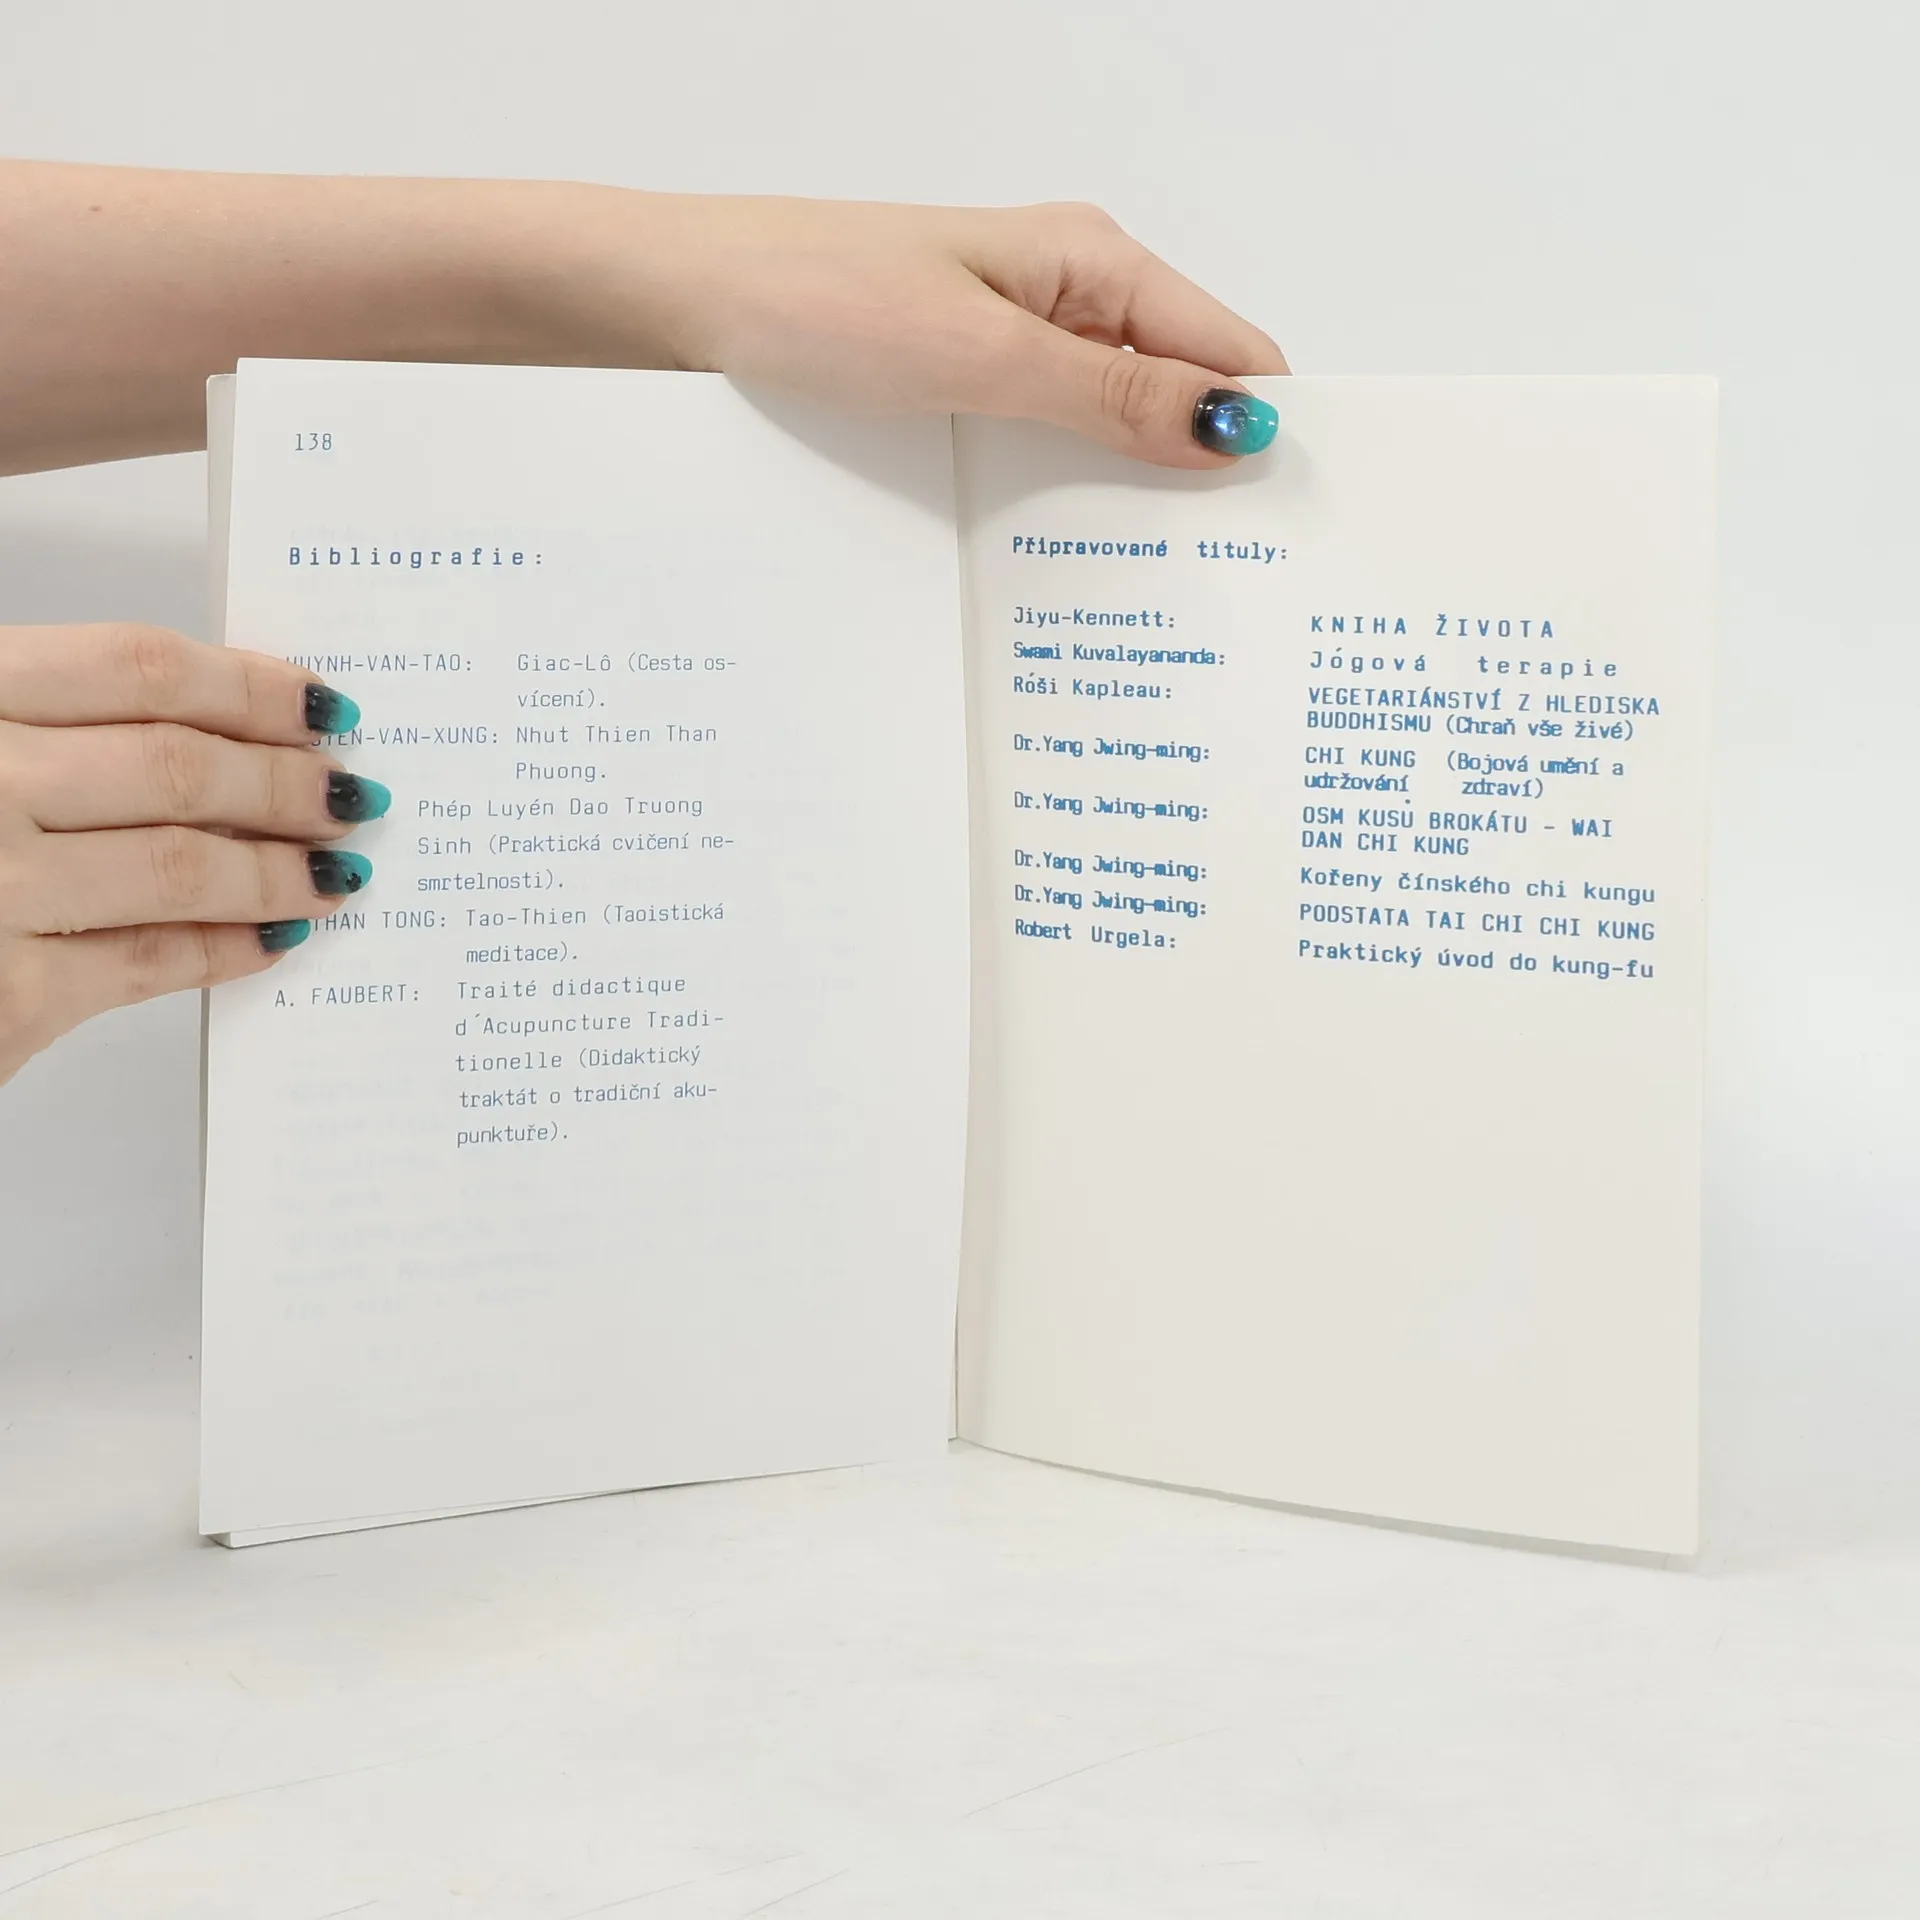 138
Bibliografie:
HUYNH-VAN-TAO: Giac-Lô (Cesta os-
vícení).
Nhut Thien Than
Phuong.
Phép Luyén Dao Truong
Sinh (Praktická cvičení ne-
smrtelnosti).
THAN TONG: Tao-Thien (Taoistická
meditace).
A. FAUBERT: Traité didactique
d´Acupuncture Tradi-
tionelle (Didaktický
traktát o tradiční aku-
punktuře).
Připravované tituly:
Jiyu-Kennett: KNIHA ŽIVOTA
Swami Kuvalayananda: Jógová terapie
Róši Kapleau: VEGETARIÁNSTVÍ Z HLEDISKA
BUDDHISMU (Chraň vše živé)
Dr.Yang Jwing-ming: CHI KUNG (Bojová umění a
udržování zdraví)
Dr.Yang Jwing-ming: OSM KUSŮ BROKÁTU - WAI
DAN CHI KUNG
Dr.Yang Jwing-ming: Kořeny čínského chi kungu
Dr.Yang Jwing-ming: PODSTATA TAI CHI CHI KUNG
Robert Urgela: Praktický úvod do kung-fu